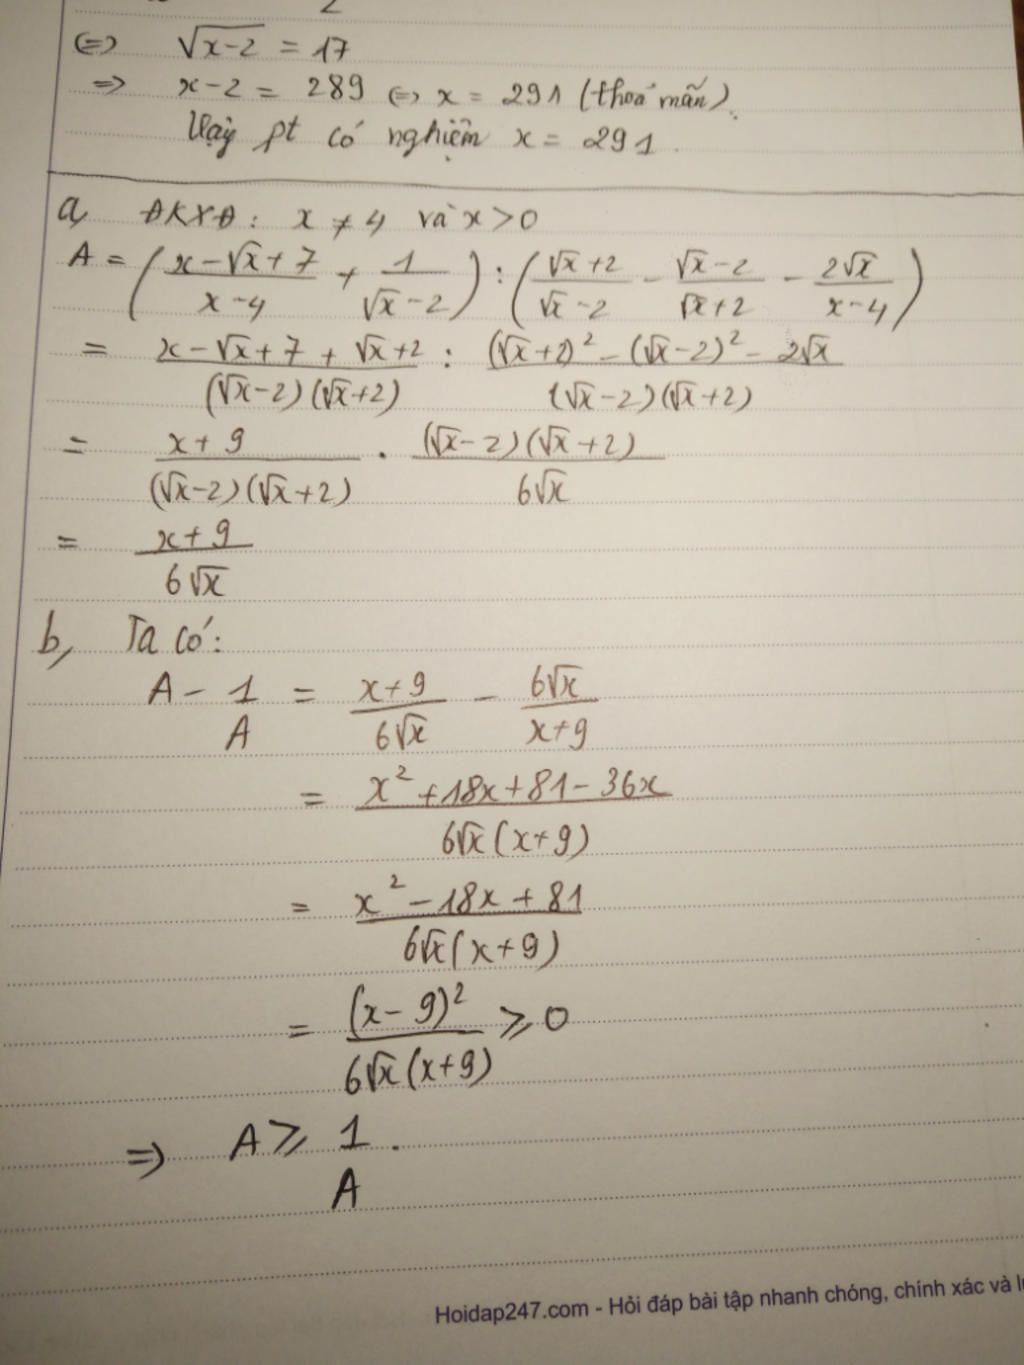 2
⇔ √x-2 = 17
⇒ x-2 = 289 ⇔ x = 291 (thoả mãn).
Vậy pt có nghiệm x = 291.
a, ĐKXĐ: x ≠ 4 và x > 0
A = ( (x-√x+7)/(x-4) + 1/(√x-2) ) : ( (√x+2)/(√x-2) - (√x-2)/(√x+2) - 2√x/(x-4) )
= (x-√x+7+√x+2)/((√x-2)(√x+2)) : ((√x+2)² - (√x-2)² - 2√x)/((√x-2)(√x+2))
= (x+9)/((√x-2)(√x+2)) . ((√x-2)(√x+2))/(6√x)
= (x+9)/(6√x)
b, Ta có:
A - 1/A = (x+9)/(6√x) - (6√x)/(x+9)
= (x²+18x+81-36x)/(6√x(x+9))
= (x²-18x+81)/(6√x(x+9))
= (x-9)²/(6√x(x+9)) ⩾ 0
⇒ A ⩾ 1/A.
Hoidap247.com - Hỏi đáp bài tập nhanh chóng, chính xác và